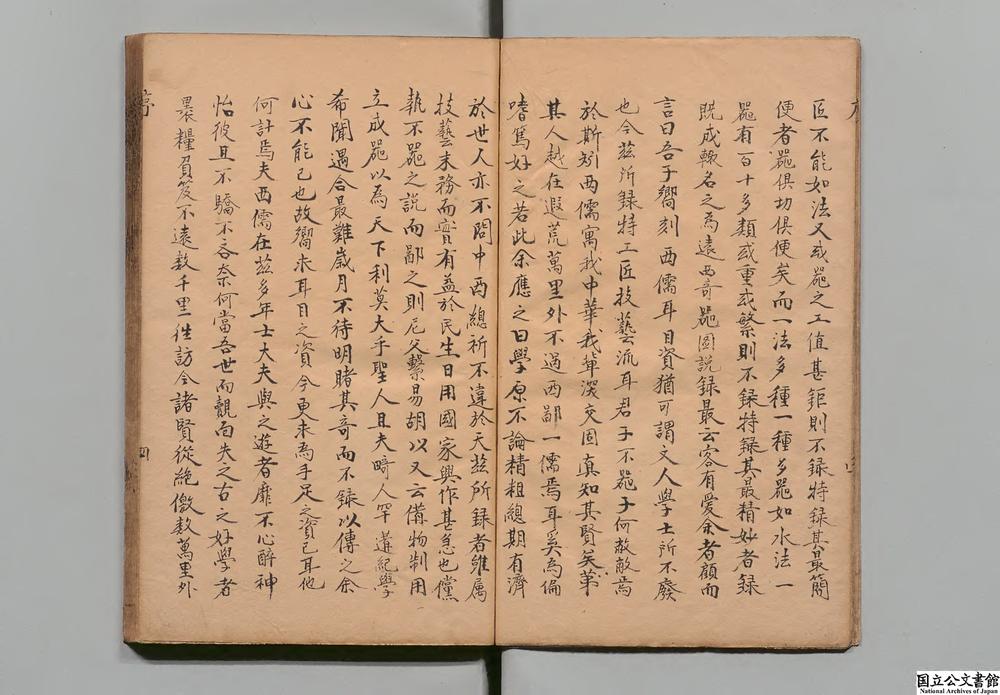 匠不能如法又或器之工值甚鉅則不録特録其最簡
便者器俱切俱便矣而一法多種一種多器如水法一
器有百十多類或重或繁則不録特録其最精妙者録
既成輙名之為遠西奇器圖説録最云客有愛余者顧而
言曰吾子嚮刻西儒耳目資猶可謂文人學士所不廢
也今兹所録特工匠技藝流耳君子不器子何敝敝焉
於斯矧西儒寓我中華我輩深交固真知其賢矣第
其人越在遐荒萬里外不過西鄙一儒焉耳奚為偏
嗜篤好之若此余應之曰學原不論精粗總期有濟
於世人亦不問中西總祈不違於天兹所録者雖属
技藝末務而實有益於民生日用國家興作甚急也儻
執不器之説而鄙之則尼父繫易胡以又云備物制用
立成器以為天下利莫大乎聖人且夫畸人罕遘紀學
希聞遇合最難歲月不待明睹其奇而不録以傳之余
心不能已也故嚮求耳目之資今更求為手足之資已耳他
何計焉夫西儒在兹多年士大夫與之遊者靡不心醉神
怡彼且不驕不吝奈何當吾世而覿面失之古之好學者
褁糧負笈不遠数千里往訪今諸賢從絶徼数萬里外
序
四
国立公文書館
National Archives of Japan